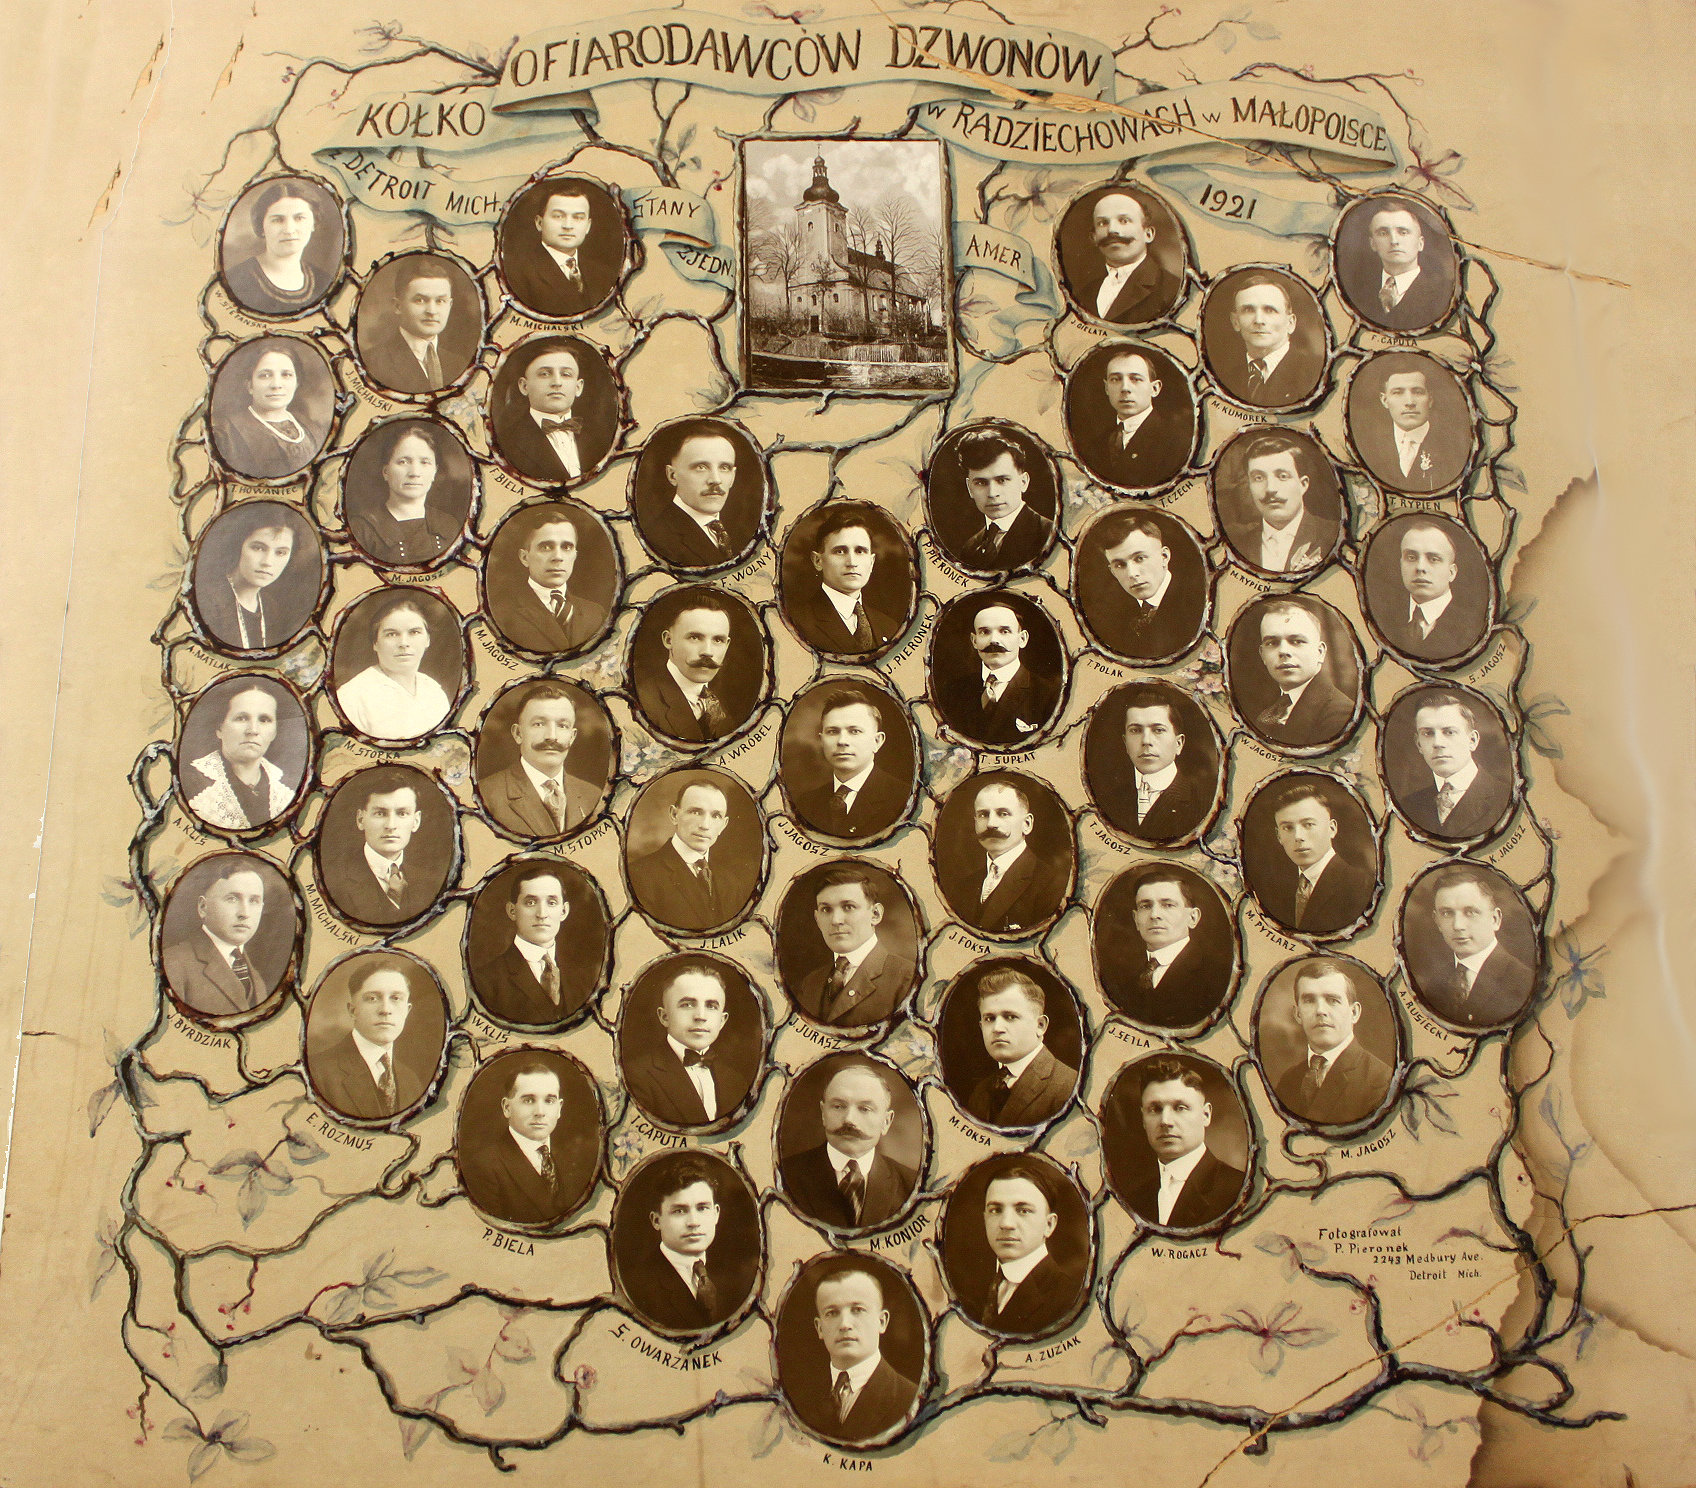 KÓŁKO OFIARODAWCÓW DZWONÓW,
w RADZIECHOWACH w MAŁOPOLSCE
z DETROIT MICH. STANY ZJEDN. AMER. 1921
W. STEFAŃSKA
J. MICHALSKI
M. MICHALSKI
J. GIELATA
M. KUMOREK
F. CAPUTA
T. HOWANIEC
M. JAGOSZ
F. BIELA
F. WOLNY
P. PIERONEK
T. CZECH
M. RYPIEŃ
T. RYPIEŃ
A. MATLAK
M. STOPKA
M. JAGOSZ
A. WRÓBEL
J. PIERONEK
T. SUPŁAT
T. POLAK
W. JAGOSZ
S. JAGOSZ
A. KLIŚ
M. MICHALSKI
M. STOPKA
J. LALIK
J. JAGOSZ
J. FOKSA
T. JAGOSZ
M. PYTLARZ
K. JAGOSZ
J. BYRDZIAK
E. ROZMUS
W. KLIŚ
I. CAPUTA
J. JURASZ
M. FOKSA
J. SEJLA
M. JAGOSZ
A. RUSIECKI
P. BIELA
S. OWARZANEK
M. KONIOR
A. ZUZIAK
W. ROGACZ
K. KAPA
Fotografował
P. Pieronek
2243 Medbury Ave.
Detroit Mich.